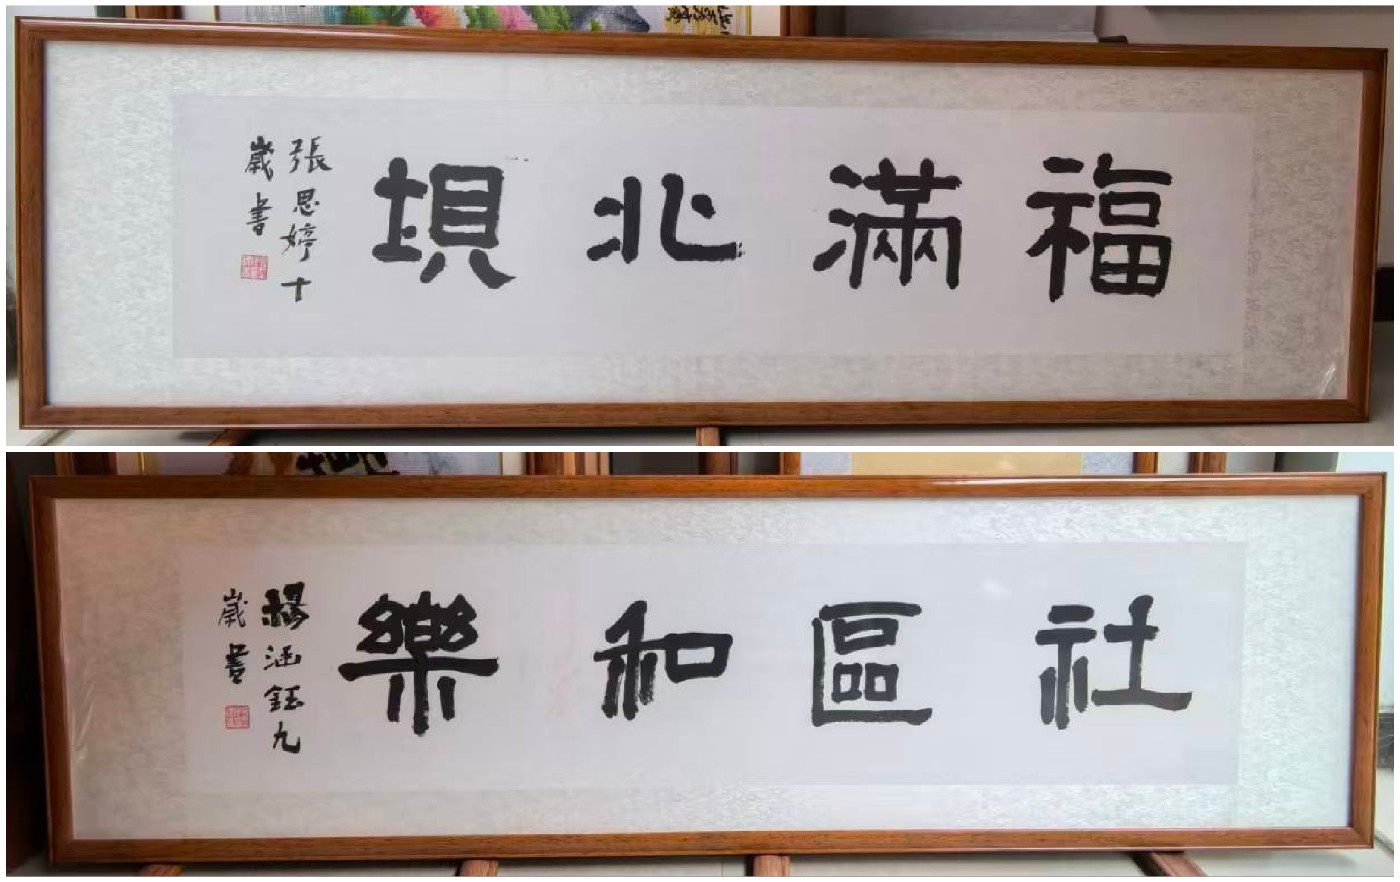 福滿北垻
張思婷十
歲書
社區和樂
楊涵鈺九
歲書